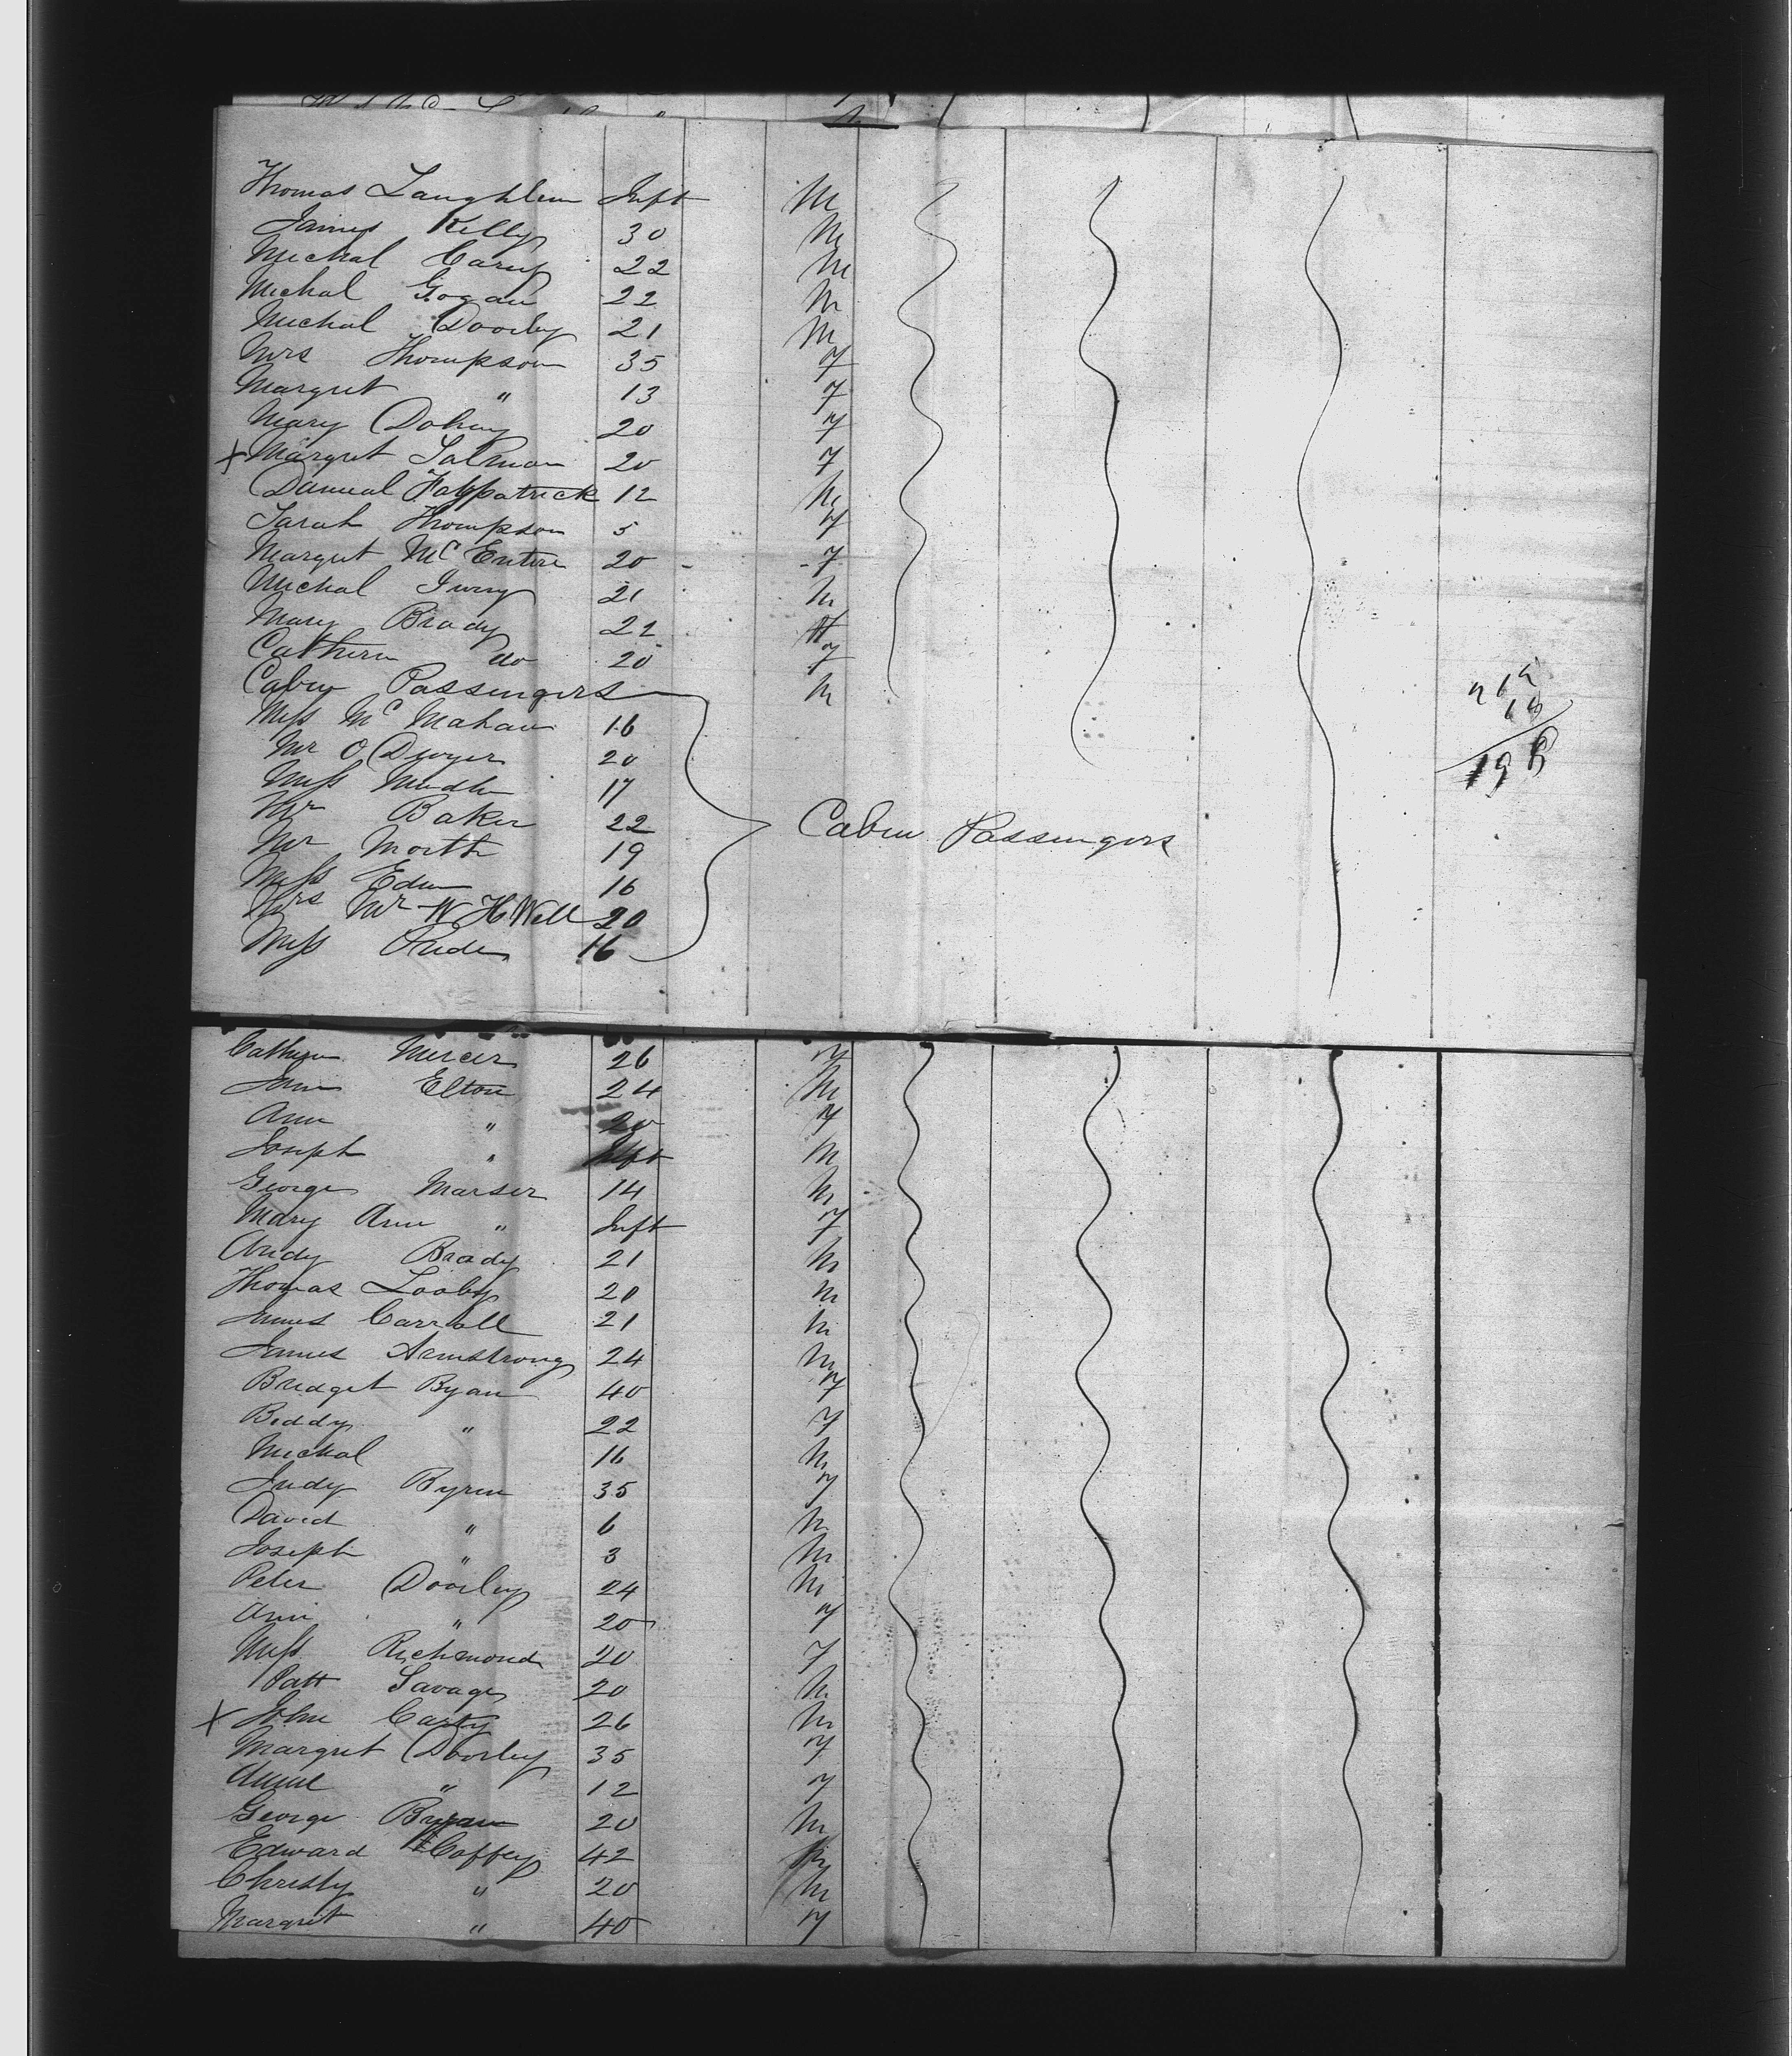 Thomas Laughlin Inft M
James Kelly 30 M
Michal Carey 22 M
Michal Gogan 22 M
Michal Doorley 21 M
Mrs Thompson 35 F
Margret " 13 F
Mary Doheny 20 F
X Margret Salmon 20 F
Danieal Fitzpatrick 12 M
Sarah Thompson 5 F
Margret McEntire 20 - - F
Michal 21 M
Mary Brady 22 F
Cathern do 20 F
Cabin Passengers M
Miss McMahan 16
Mr O Dwyer 20
Miss 17
Mr Baker 22
Mr North 19
Miss 16
Mrs Mr W H Well 20
Miss 16
Cabin Passengers
212
198
Cathern Mercer 26 F
Elton 24 M
Ann " 20 F
Joseph " Inft M
George Marser 14 M
Mary Ann " Inft F
Andy Brady 21 M
Thomas Looby 20 M
James Carroll 21 M
James Armstrong 24 M
Bridget Ryan 40 F
Biddy " 22 F
Michal 16 M
Judy Byrne 35 F
David " 6 M
Joseph " 3 M
Peter Doorley 24 M
Ann " 20 F
Miss Richmond 20 F
Patt Savage 20 M
X John Carty 26 M
Margret Doorley 35 F
Annie " 12 F
George 20 M
Edward Coffey 42 M
Christy " 20 M
Margret " 40 F